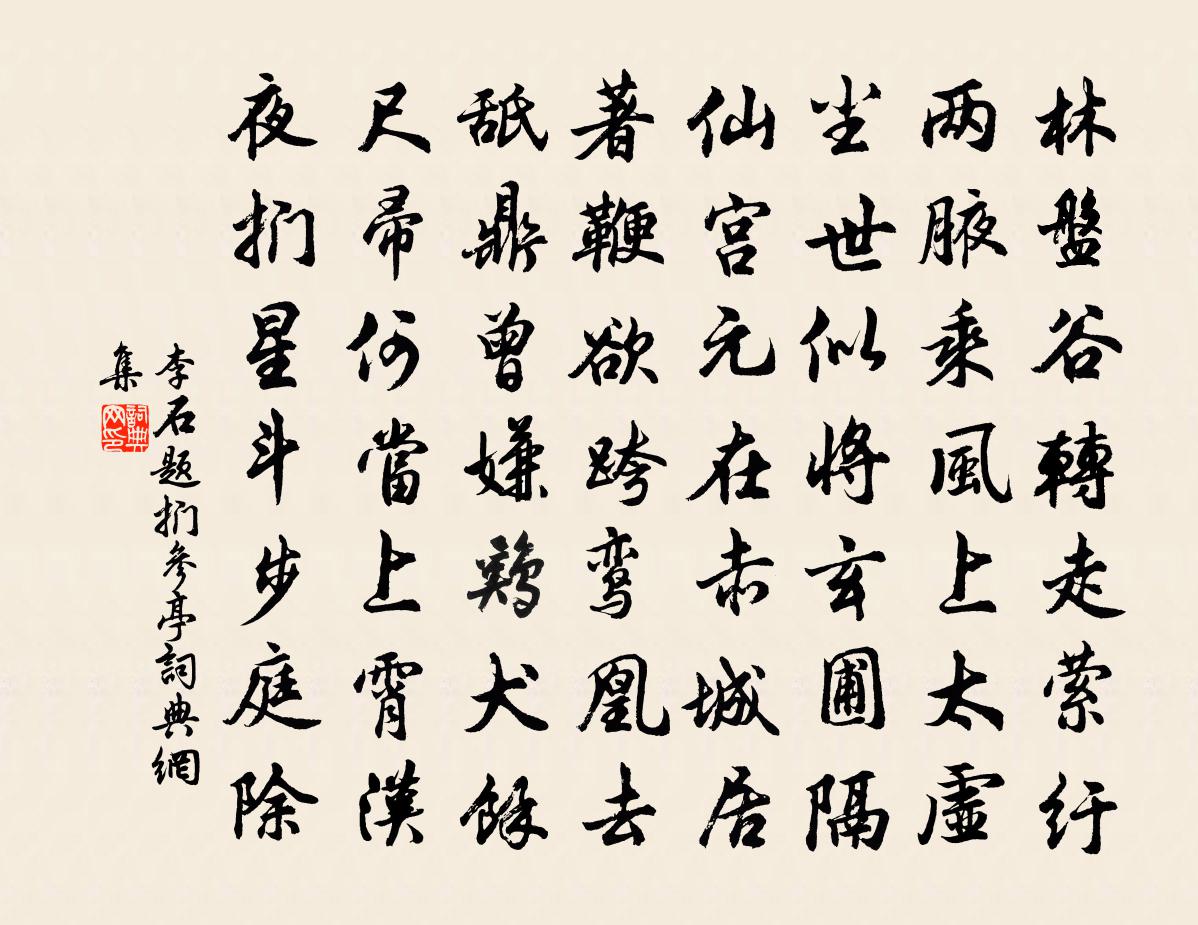 林盤谷轉走萦纡
两腋乘風上太虛
尘世似将玄圃隔
仙宫元在赤城居
著鞭欲跨鸾凰去
舐鼎曾嫌鷄犬餘
尺帚何當上霄漢
夜捫星斗步庭除
李石题捫參亭詞典網
集
詞典网印